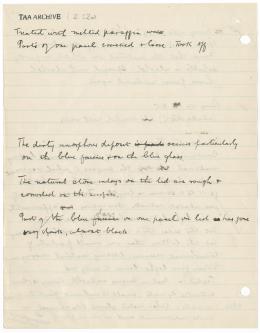 TAA ARCHIVE
Treated with melted paraffin wax
Parts of one panel cracked & loose. Took off
The dusty amorphous deposit occurs particularly
on the blue faience & on the blue glass
The natural stone inlays on the lid are rough &
corroded on the surface.
Part of the blue faience on one panel on lid has gone
very dark, almost black